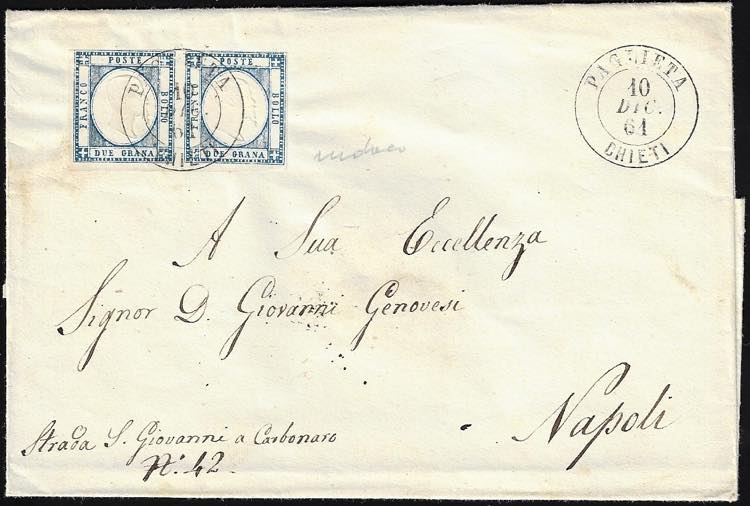 POSTE
FRANCO
BOLLO
DUE GRANA
POSTE
FRANCO
BOLLO
DUE GRANA
PAGLIETA
10
DIC.
61
CHIETI
A Sua Eccellenza
Signor D. Giovanni Genovesi
Napoli
Strada S. Giovanni a Carbonaro
N.° 42.